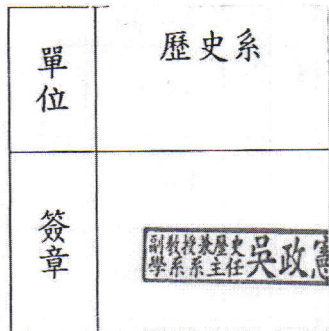 單位
歷史系
簽章
副教授兼歷史
學系系主任
吳政憲